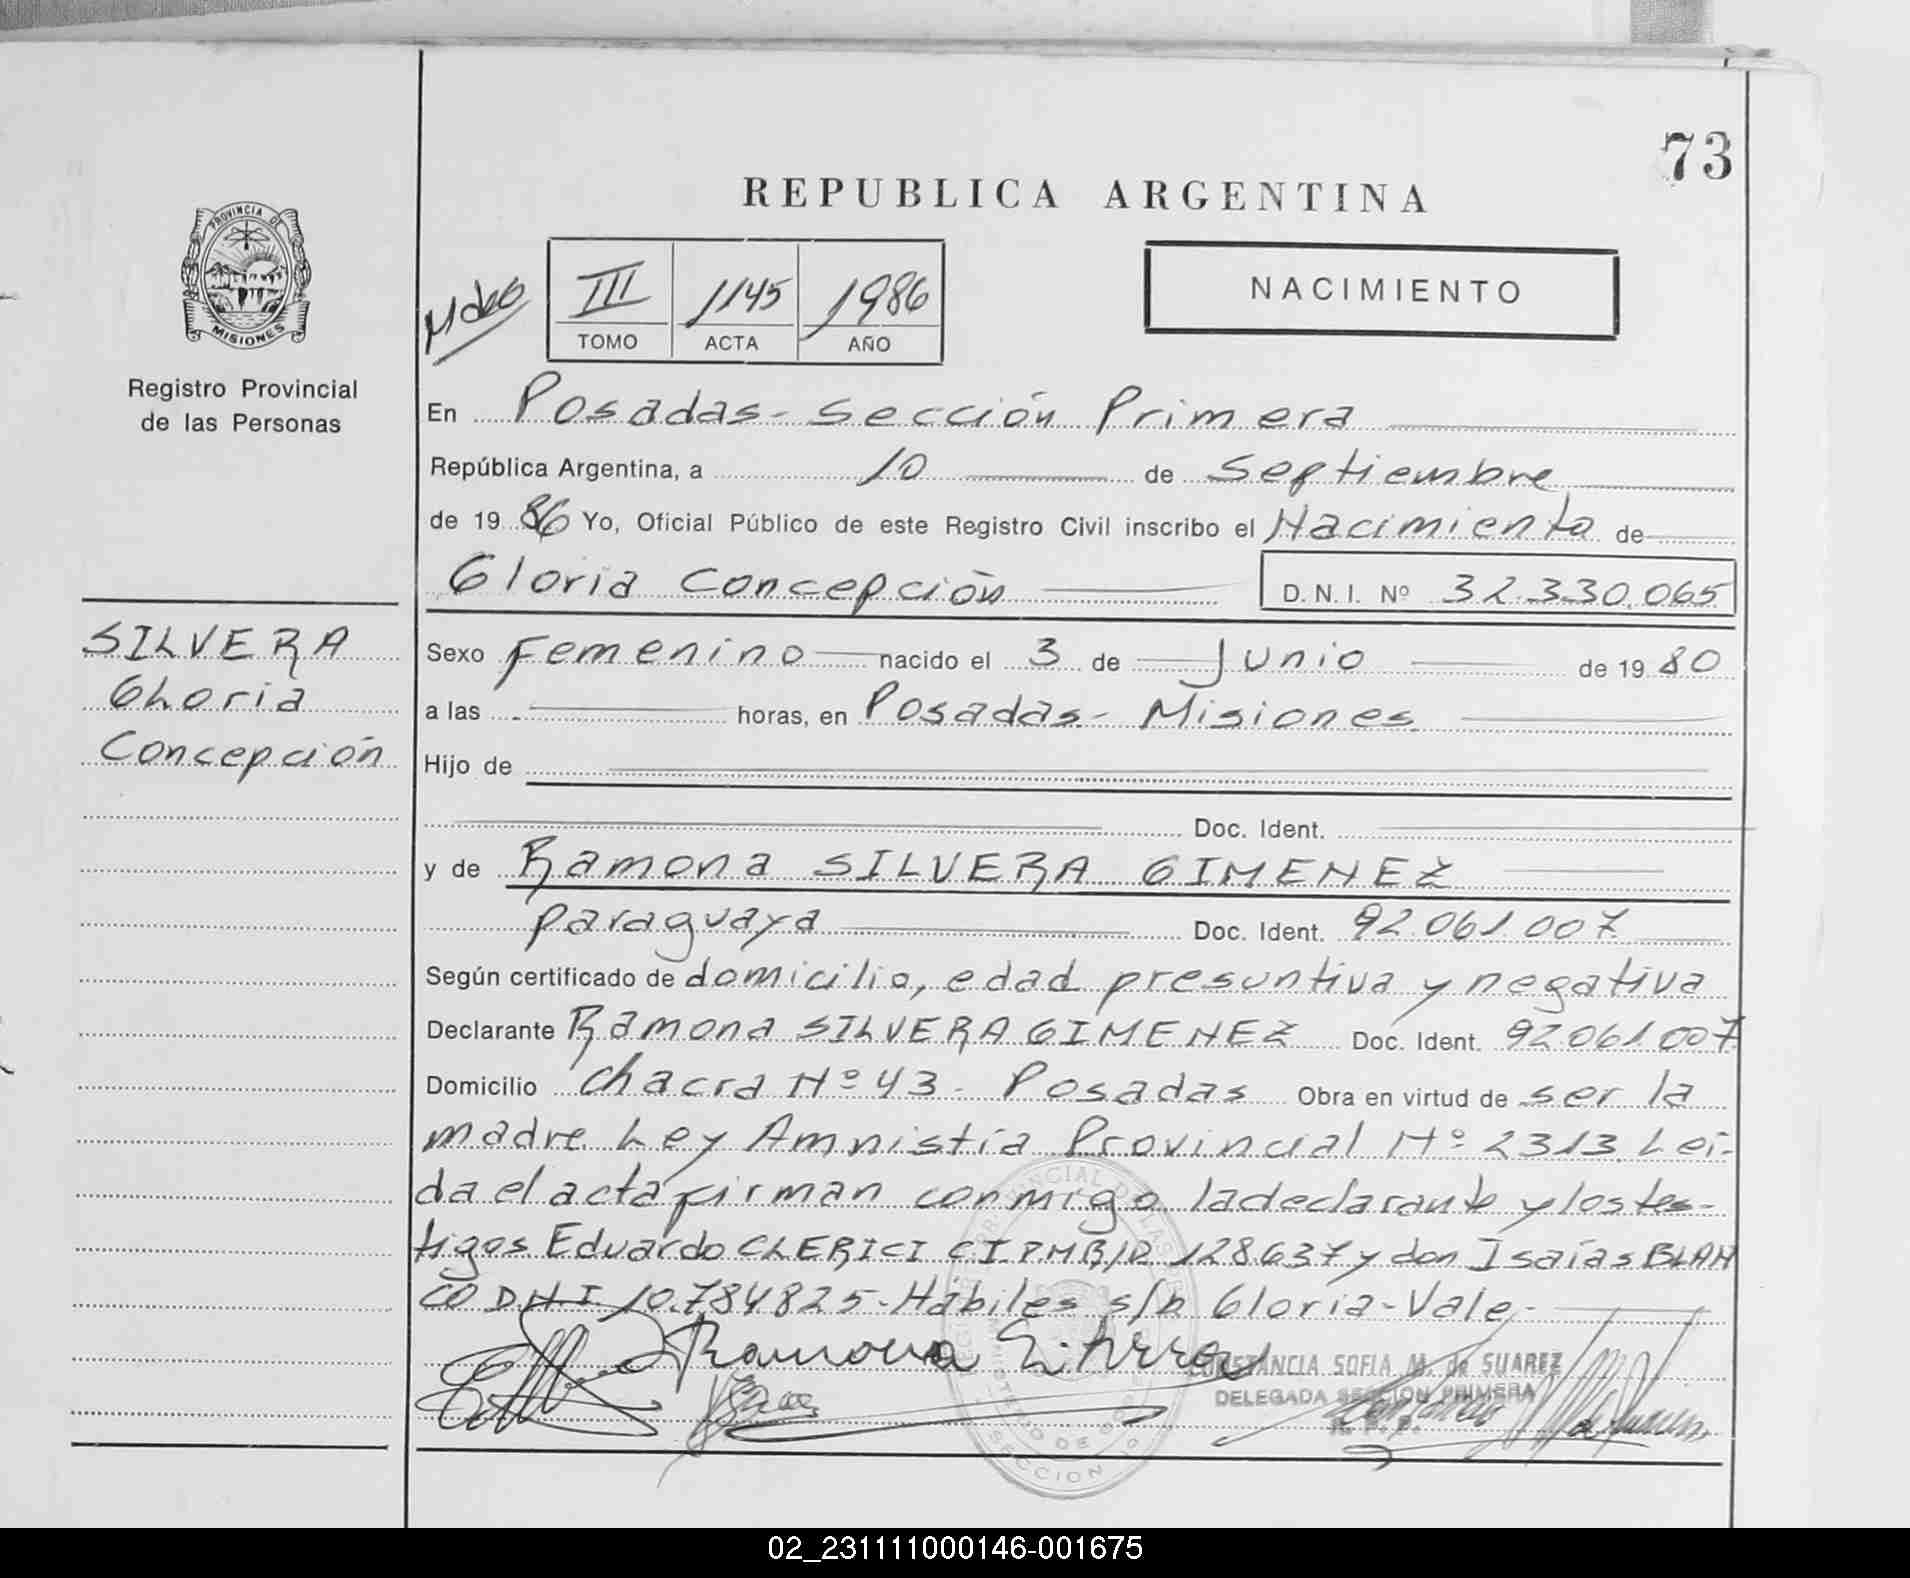 73
REPUBLICA ARGENTINA
PROVINCIA DE
MISIONES
Registro Provincial
de las Personas
III 1145 1986
TOMO ACTA AÑO
NACIMIENTO
En Posadas - Sección Primera
República Argentina, a 10 de Septiembre
de 19 86 Yo, Oficial Público de este Registro Civil inscribo el Nacimiento de
Gloria Concepción D. N. I. Nº 32.330.065
SILVERA
Gloria
Concepción
Sexo Femenino nacido el 3 de Junio de 19 80
a las horas, en Posadas - Misiones
Hijo de
Doc. Ident.
y de Ramona SILVERA GIMENEZ
paraguaya Doc. Ident. 92.061.007
Según certificado de domicilio, edad presuntiva y negativa
Declarante Ramona SILVERA GIMENEZ Doc. Ident. 92.061.007
Domicilio Chacra Nº 43 - Posadas Obra en virtud de ser la
madre Ley Amnistía Provincial Nº 2313. Leí-
da el acta firman conmigo la declarante y los tes-
tigos Eduardo CLERICI C.I. 128.637 y don Isaías BLAN
CO D.N.I. 10.784825 - Hábiles s/r Gloria - Vale -
Ramona
CONSTANCIA SOFIA M. de SUAREZ
DELEGADA SECCION PRIMERA
R. P. P.
02_231111000146-001675